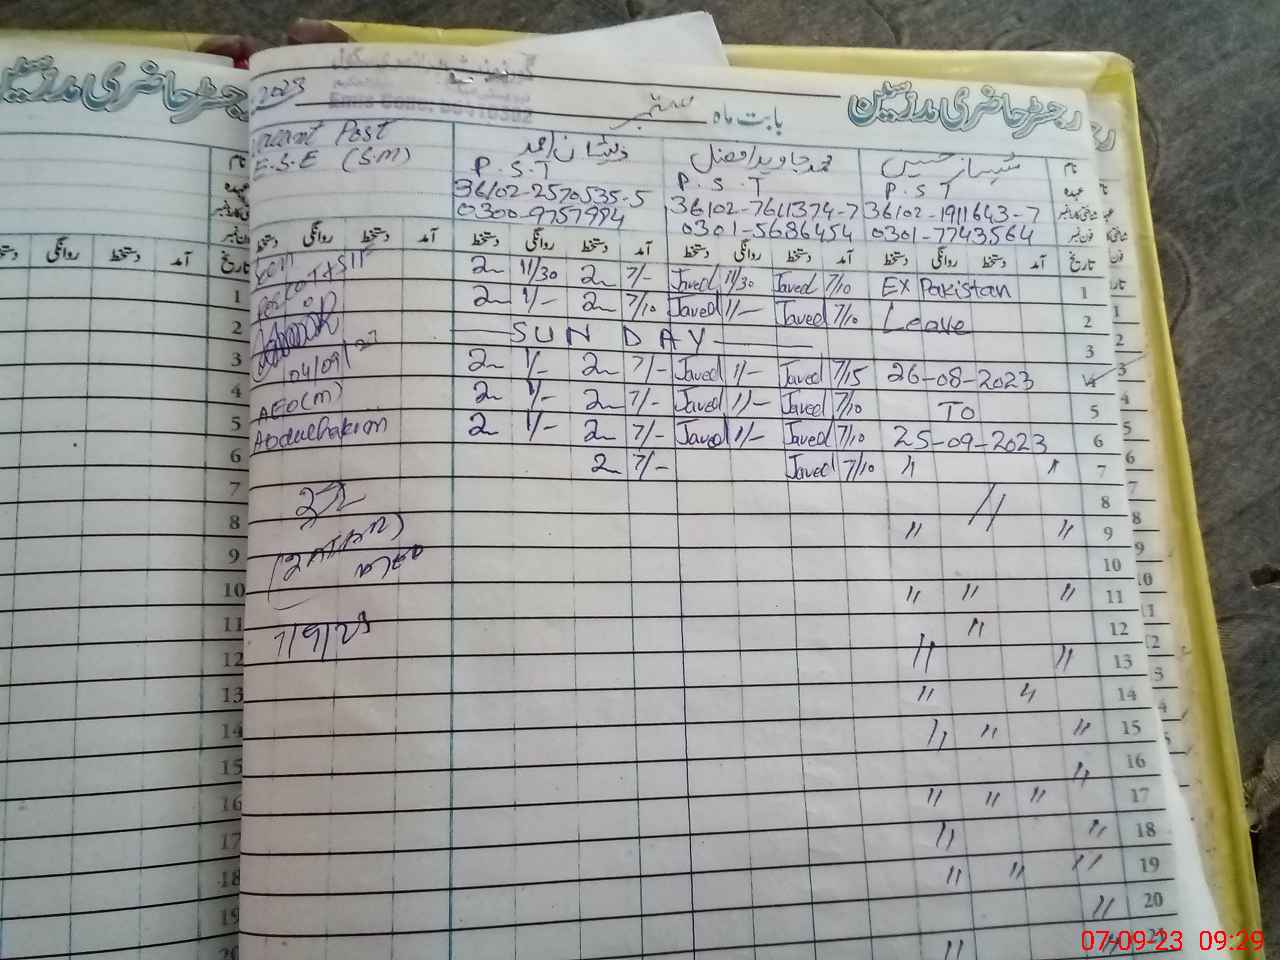 رجسٹر حاضری مدرسین
رجسٹر حاضری مدرسین
بابت ماہ ستمبر
2023
Vacant Post
E.S.E (S.M)
ذیشان احمد
P.S.T
36102-2570535-5
0300-9757984
محمد جاوید افضل
P.S.T
36102-7611374-7
0301-5686454
شہباز حسین
P.S.T
36102-1911643-7
0301-7743564
نام
عہدہ
شناختی کارڈ نمبر
فون نمبر
تاریخ آمد دستخط روانگی دستخط آمد دستخط روانگی دستخط آمد دستخط روانگی دستخط آمد دستخط روانگی دستخط
تاریخ آمد دستخط روانگی دستخط
11/30 7/- Javed 11/30 Javed 7/10 EX Pakistan 1
1/- 7/10 Javed 1/- Javed 7/10 Leave 2
SUN DAY 3
1/- 7/- Javed 1/- Javed 7/15 26-08-2023 4
1/- 7/- Javed 1/- Javed 7/10 To 5
1/- 7/- Javed 1/- Javed 7/10 25-09-2023 6
7/- Javed 7/10 " " 7
04/09/23
AEO(M)
Abdulhakim
7/9/23
" 8
" " 9
10
" " " 11
" 12
" " 13
" " 14
" " " 15
" 16
" " " 17
" " 18
" " " 19
" 20
" " 21
1
2
3
4
5
6
7
8
9
10
11
12
13
14
15
16
17
18
19
20
07-09-23 09:29